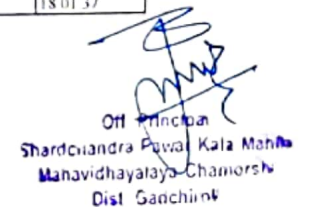 18 01 37
Off Principal
Shardchandra Pawar Kala Mahila
Mahavidhayalaya Chamorshi
Dist